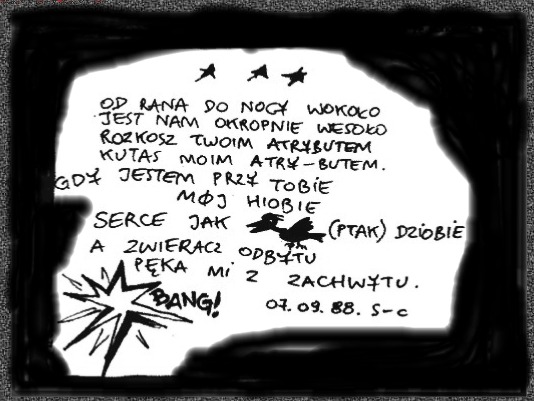 OD RANA DO NOCY WOKOŁO
JEST NAM OKROPNIE WESOŁO
ROZKOSZ TWOIM ATRYBUTEM
KUTAS MOIM ATRY-BUTEM.
GDY JESTEM PRZY TOBIE
MÓJ HIOBIE
SERCE JAK (PTAK) DZIOBIE
A ZWIERACZ ODBYTU
PĘKA MI Z ZACHWYTU.
BANG!
07.09.88. S-C